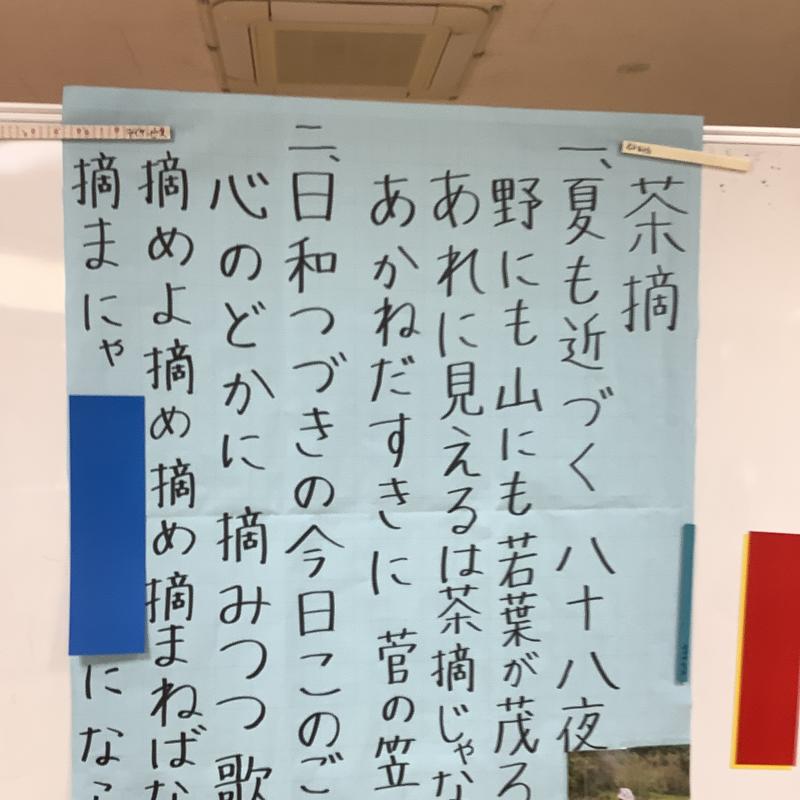 茶摘
一、夏も近づく 八十八夜
野にも山にも若葉が茂る
あれに見えるは茶摘じゃな
あかねだすきに 菅の笠
二、日和つづきの今日このご
心のどかに 摘みつつ 歌
摘めよ摘め摘め摘まねばな
摘まにゃ
になら